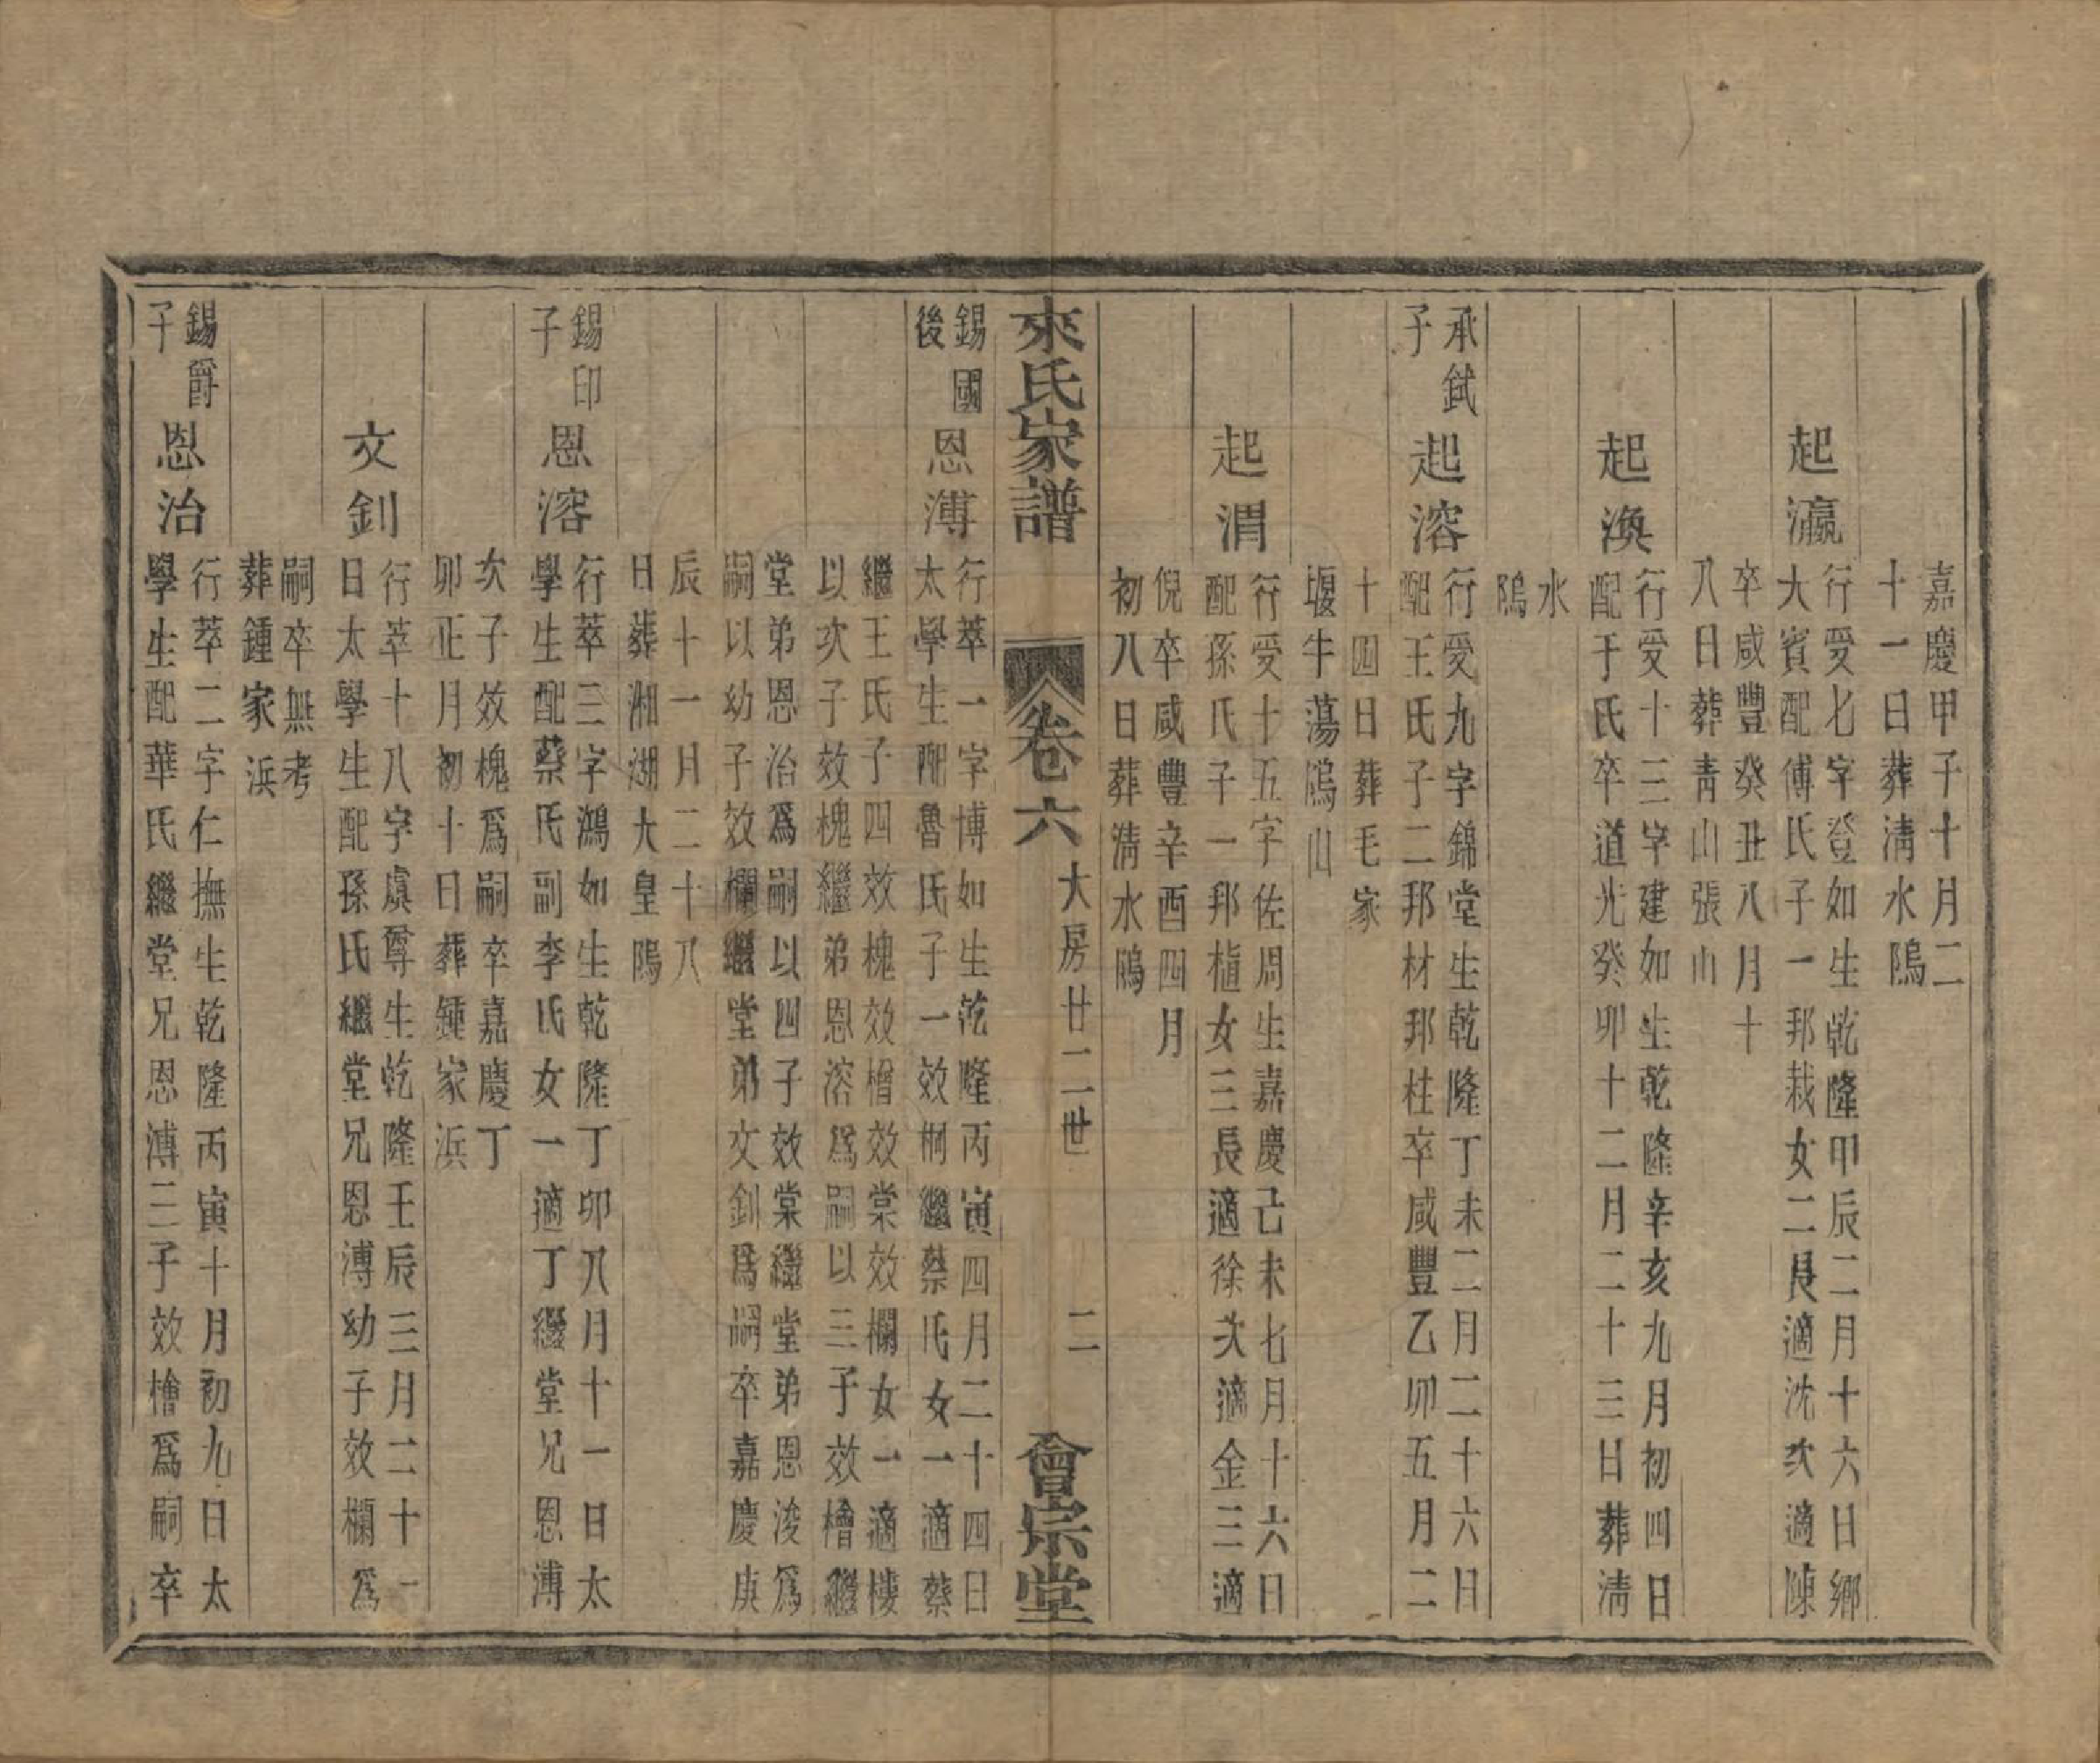 嘉慶甲子十月二
十一日葬淸水隖
起瀛
行受七字登如生乾隆甲辰二月十六日鄉
大賓配傅氏子一邦栽女二長適沈次適陳
卒咸豐癸丑八月十
八日葬靑山張山
起渙
行受十三字建如生乾隆辛亥九月初四日
配于氏卒道光癸卯十二月二十三日葬淸
水
隖
承鉽
子
起溶
行受九字錦堂生乾隆丁未二月二十六日
配王氏子二邦材邦柱卒咸豐乙卯五月二
十四日葬毛家
堰牛蕩隖山
起渭
行受十五字佐周生嘉慶己未七月十六日
配孫氏子一邦植女三長適徐次適金三適
倪卒咸豐辛酉四月
初八日葬淸水隖
來氏家譜
卷六
大房廿二世
二
會宗堂
錫國
後
恩溥
行萃一字博如生乾隆丙寅四月二十四日
太學生配魯氏子一效桐繼蔡氏女一適蔡
繼王氏子四效槐效檜效棠效欄女一適樓
以次子效槐繼弟恩溶爲嗣以三子效檜繼
堂弟恩治爲嗣以四子效棠繼堂弟恩浚爲
嗣以幼子效欄繼堂弟文釗爲嗣卒嘉慶庚
辰十一月二十八
日葬湘湖大皇隖
錫印
子
恩溶
行萃三字鴻如生乾隆丁卯八月十一日太
學生配蔡氏副李氏女一適丁繼堂兄恩溥
次子效槐爲嗣卒嘉慶丁
卯正月初十日葬鍾家浜
文釗
行萃十八字虞尊生乾隆壬辰三月二十一
日太學生配孫氏繼堂兄恩溥幼子效欄爲
嗣卒無考
葬鍾家浜
錫爵
子
恩治
行萃二字仁撫生乾隆丙寅十月初九日太
學生配華氏繼堂兄恩溥三子效檜爲嗣卒